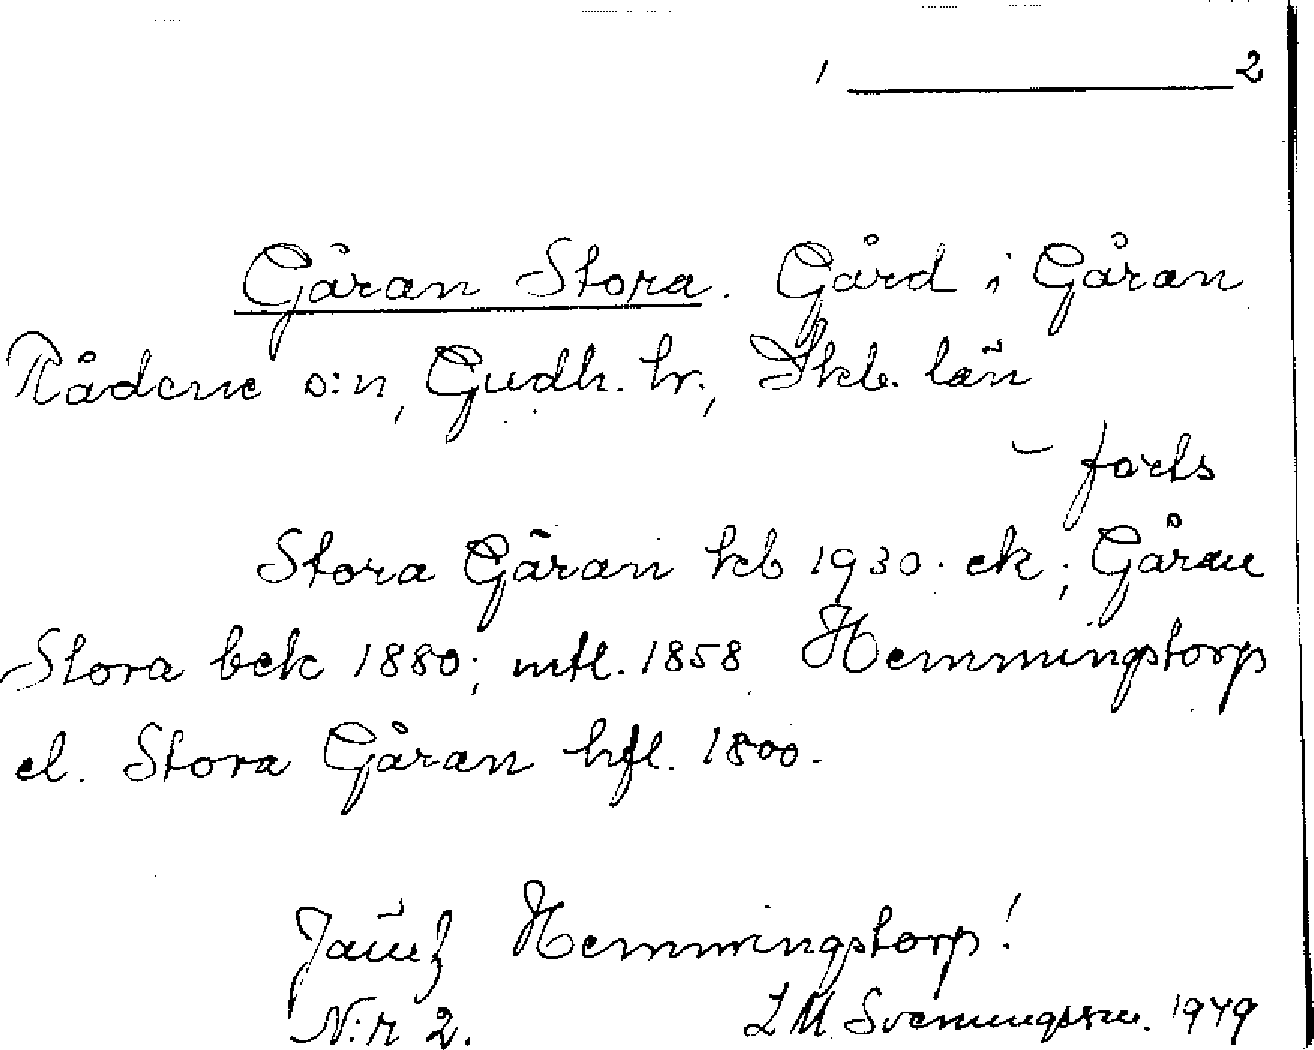 2
Gåran Stora. Gård i Gåran
Rådene s:n, Gudh. hr., Skb. län
– forts
Stora Gåran kb 1930. ek; Gåran
Stora bek 1880; mtl. 1858 Hemmingstorp
el. Stora Gåran hfl. 1800.
Jämf Hemmingstorp!
N:r 2.
1949